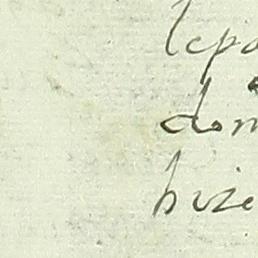 lepa
dom
bize